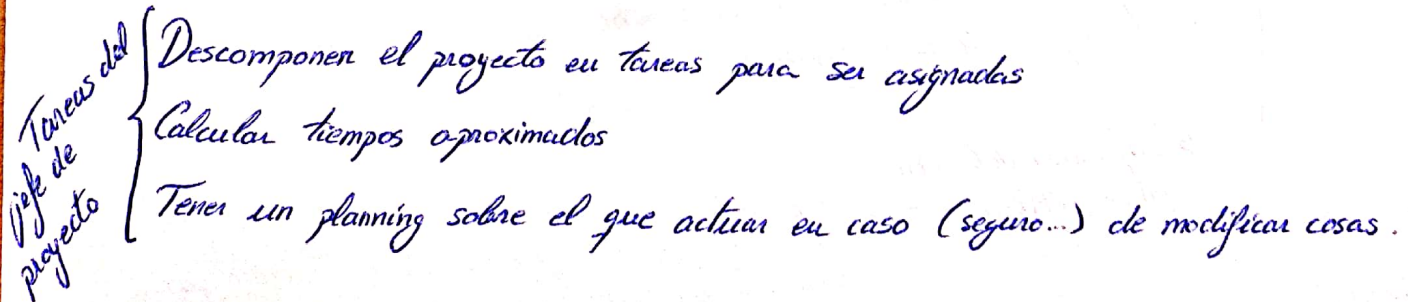 Tareas del
jefe de
proyecto
Descomponer el proyecto en tareas para ser asignadas
Calcular tiempos aproximados
Tener un planning sobre el que actuar en caso (seguro...) de modificar cosas.